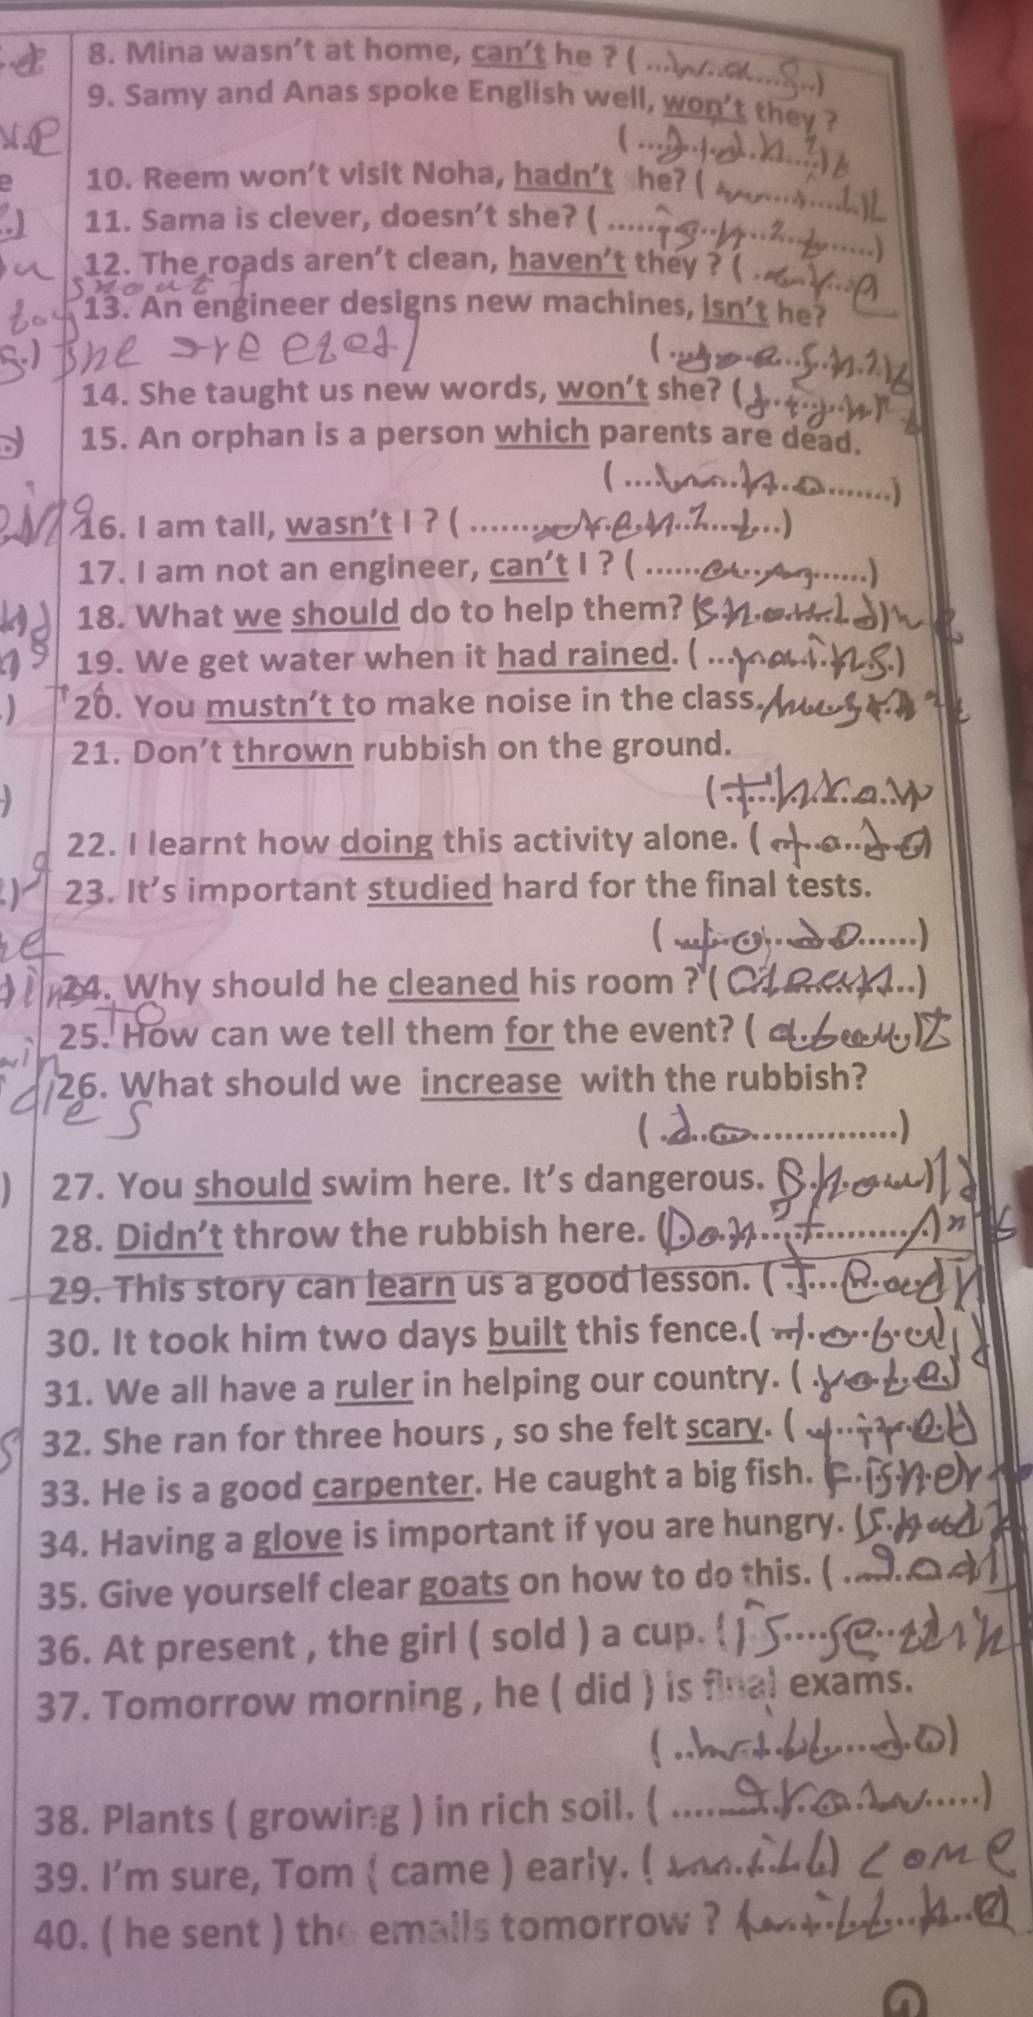 8. Mina wasn't at home, can't he ? ( ...was...)
9. Samy and Anas spoke English well, won't they ?
(...didn't
10. Reem won't visit Noha, hadn't he? ( will
11. Sama is clever, doesn't she? ( ......isn't......)
12. The roads aren't clean, haven't they ? ( are
13. An engineer designs new machines, isn't he?
( doesn't
14. She taught us new words, won't she? ( didn't
15. An orphan is a person which parents are dead.
( ....who.......)
16. I am tall, wasn't I ? ( ........aren't...)
17. I am not an engineer, can't I ? ( ......am......)
18. What we should do to help them? (should we
19. We get water when it had rained. ( ...rains.)
20. You mustn't to make noise in the class. mustn't
21. Don't thrown rubbish on the ground.
(throw
22. I learnt how doing this activity alone. ( to do
23. It's important studied hard for the final tests.
( to do......)
24. Why should he cleaned his room ? (clean..)
25. How can we tell them for the event? ( about
26. What should we increase with the rubbish?
( do...............)
27. You should swim here. It's dangerous. should n't
28. Didn't throw the rubbish here. (Don't........)
29. This story can learn us a good lesson. ( .T...each
30. It took him two days built this fence.( to build
31. We all have a ruler in helping our country. ( role)
32. She ran for three hours , so she felt scary. (
33. He is a good carpenter. He caught a big fish. fisher
34. Having a glove is important if you are hungry. (
35. Give yourself clear goats on how to do this. ( ...goal
36. At present , the girl ( sold ) a cup. ( is....
37. Tomorrow morning , he ( did ) is final exams.
( ..will....do)
38. Plants ( growing ) in rich soil. ( ......grow.....)
39. I'm sure, Tom ( came ) early. ( will) come
40. ( he sent ) the emails tomorrow ? (will he